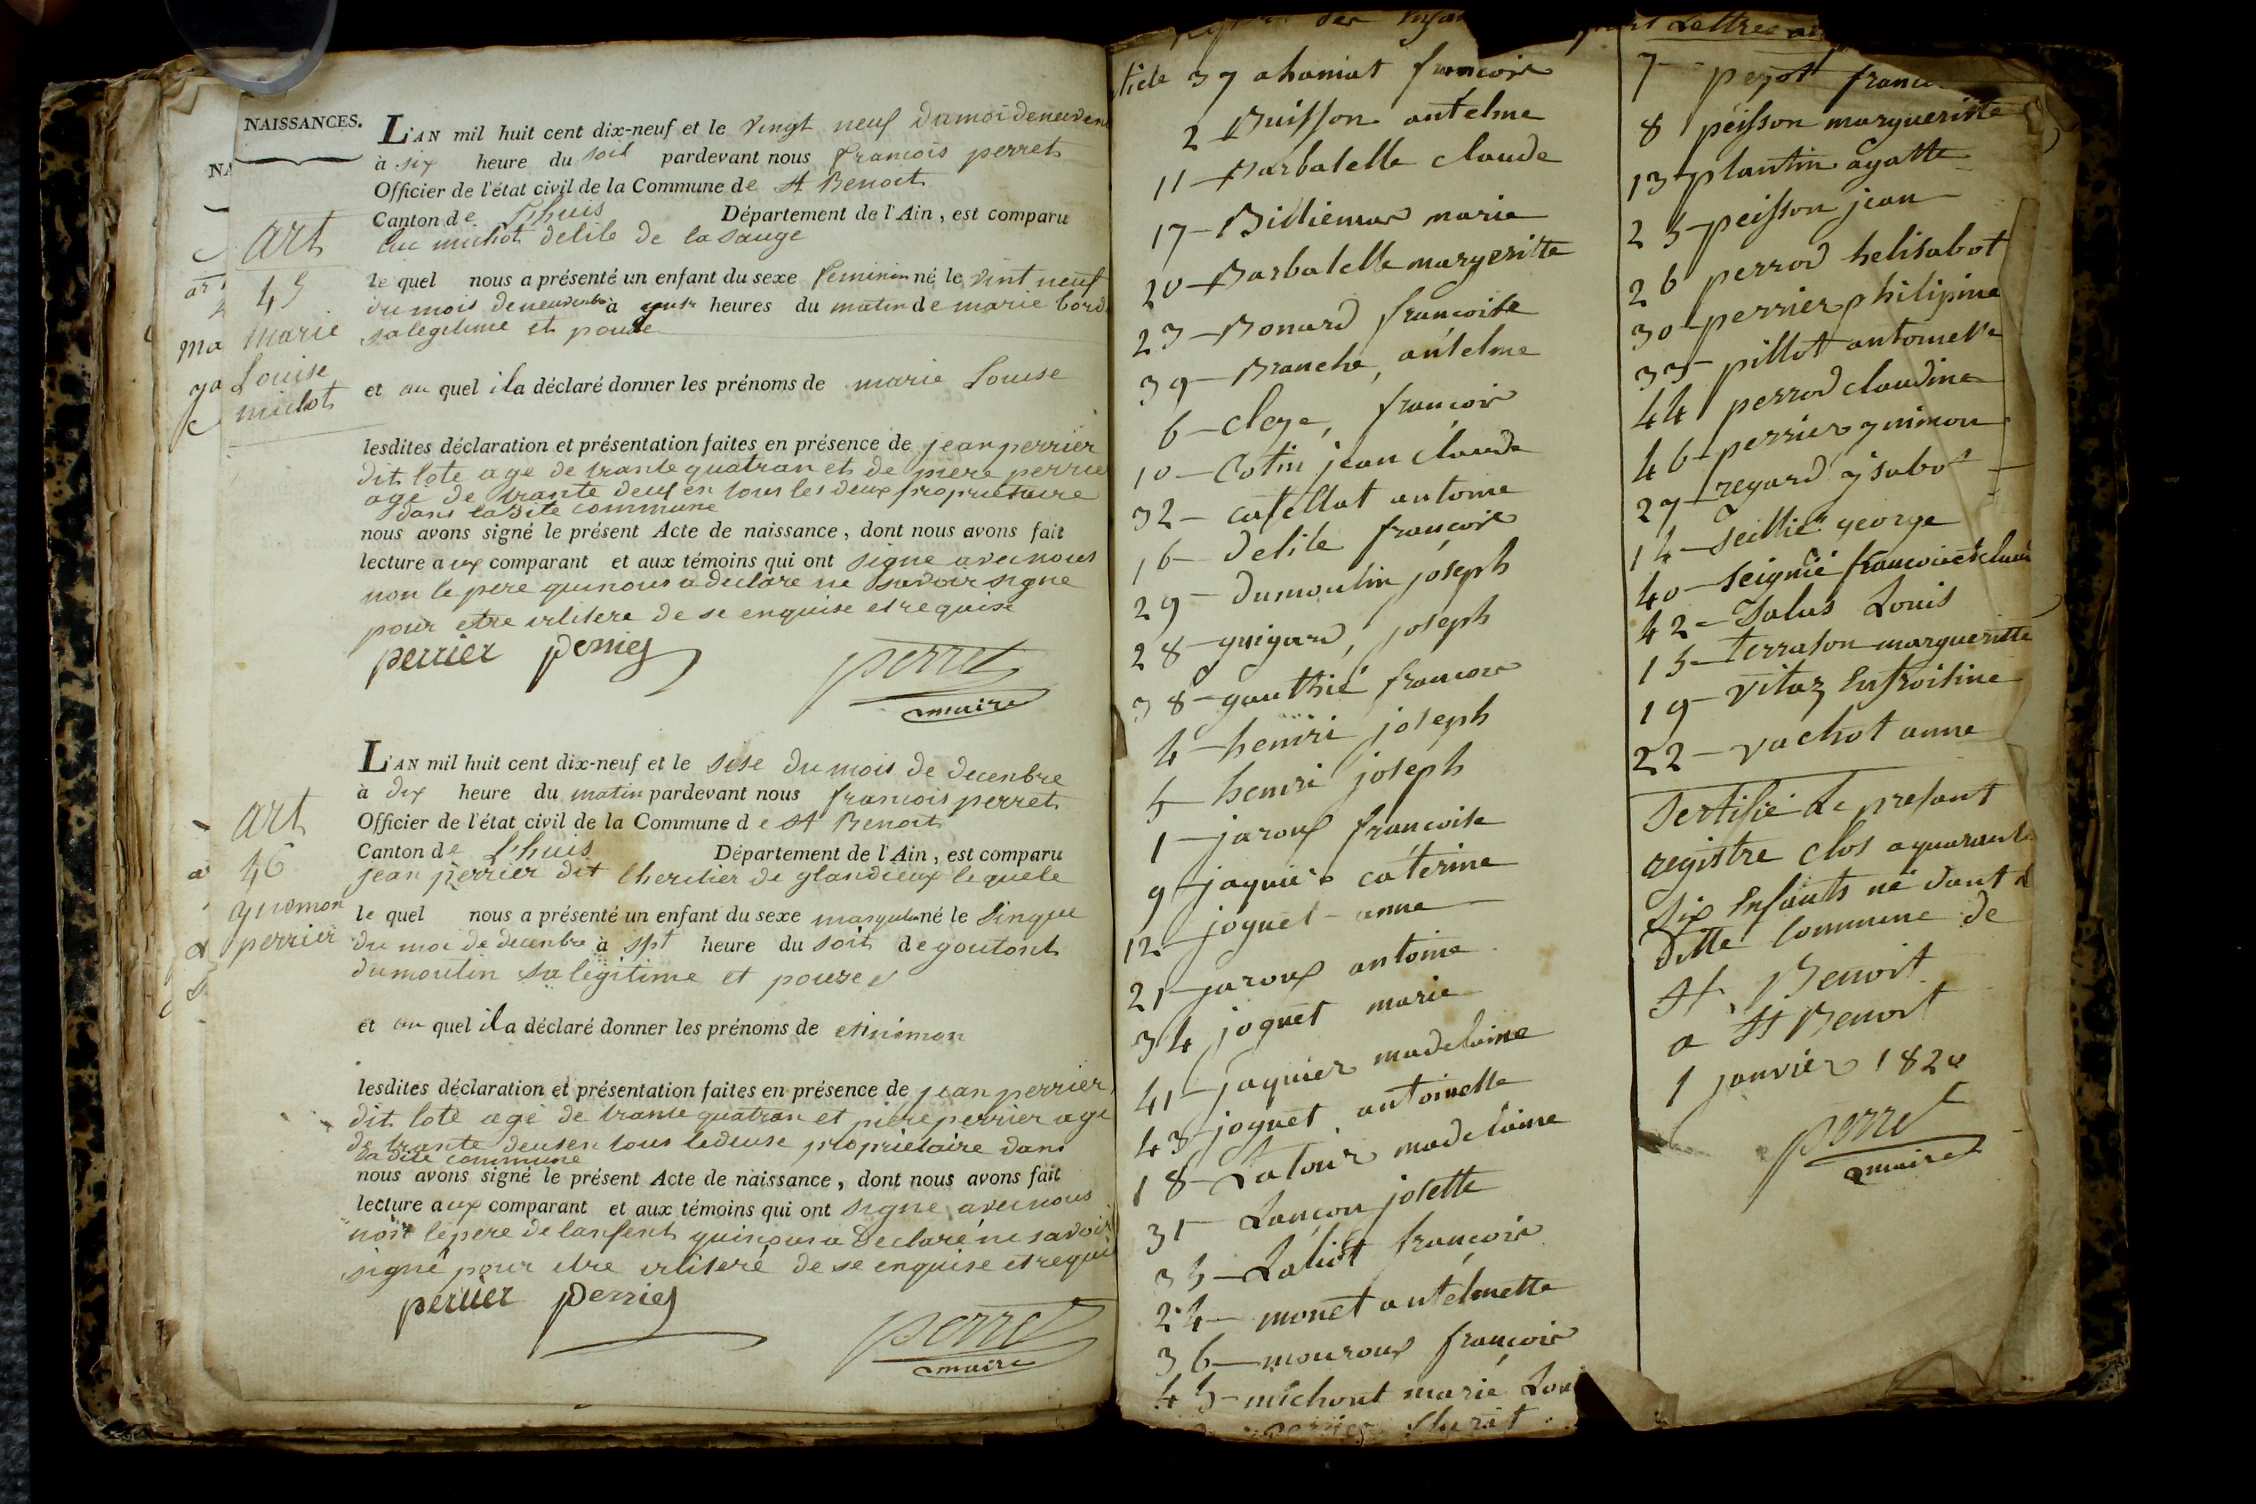 NAISSANCES.
L'AN mil huit cent dix-neuf et le vingt neuf du moi de
à six heure du soit pardevant nous francois perret
Officier de l'état civil de la Commune de St Benoit
Canton de Lhuis Département de l'Ain, est comparu
michot delile de la sauge
art
45
marie
Louise
michot
le quel nous a présenté un enfant du sexe feminin né le vint neuf
du mois de à heures du matin de marie bord
sa legitime et pouse
et au quel il a déclaré donner les prénoms de marie Louise
lesdites déclaration et présentation faites en présence de jean perrier
dit lote age de trante quatran et de piere perrie
age de trante deus en tous les deux proprietaire
dans ladite commune
nous avons signé le présent Acte de naissance, dont nous avons fait
lecture aux comparant et aux témoins qui ont signe avec nous
non le pere qui nous a declare ne savoir signe
pour etre de se enquise et requise
perrier perrier
perret
maire
L'AN mil huit cent dix-neuf et le sise du mois de decenbre
à dix heure du matin pardevant nous francois perret
Officier de l'état civil de la Commune de St Benoit
Canton de Lhuis Département de l'Ain, est comparu
jean perrier dit lheritier de glandieux le quele
art
46
perrier
le quel nous a présenté un enfant du sexe masqulin né le sinque
du moi de decenbre à spt heure du soit de goutont
dumoulin sa legitime et pouse
et au quel il a déclaré donner les prénoms de
lesdites déclaration et présentation faites en présence de jean perrier
dit lote age de trante quatran et piere perrier age
de trante deusen tous ledeuse proprietaire dans
ladite commune
nous avons signé le présent Acte de naissance, dont nous avons fait
lecture aux comparant et aux témoins qui ont signe avec nous
non le pere de lanfent qui nous a declaré ne savoir
signé pour etre de se enquise et requi
perrier perrier
perret
maire
37 ahaniat francois
2 - Buisson antelme
11 - Barbatelle claude
17 - Billiemas marie
20 - Barbatelle margeritte
23 - Bonard francoise
39 - Branche, antelme
6 - cleye, francois
10 - Cotin jean claude
32 - catellat antoine
16 - delile francois
29 - dumoulin joseph
28 - guigard, joseph
38 - gauthié francois
4 - henri joseph
5 - henri joseph
1 - jaroux francoise
9 - jaquié caterine
12 - joguet - anne
21 - jaroux antoine
34 joguet marie
41 - jaquier madelaine
43 - joguet antoinette
18 - Latour madelaine
31 - Lançon josette
35 - Laliot francois
24 - monet antelmette
36 - mouroux francois
45 - michout marie Lou
Lettres
7 - peyot franc
8 peisson margueritte
13 - plantin agatte
25 - peisson jean
26 perrod helisabot
30 - perrier philipine
33 - pillot antoinette
44 perrod claudine
46 - perrier
27 - regard ysabot
14 - Seillié george
40 - Seignié francois
42 - Salus Louis
15 - terrason margueritte
19 - vitaz Enfroisine
22 - vachot anne
Sertifié Le presant
registre clos a quarante
six Enfants né dant
ditte Commune de
St Benoit
a St Benoit
1 janvier 1820
perret
maire